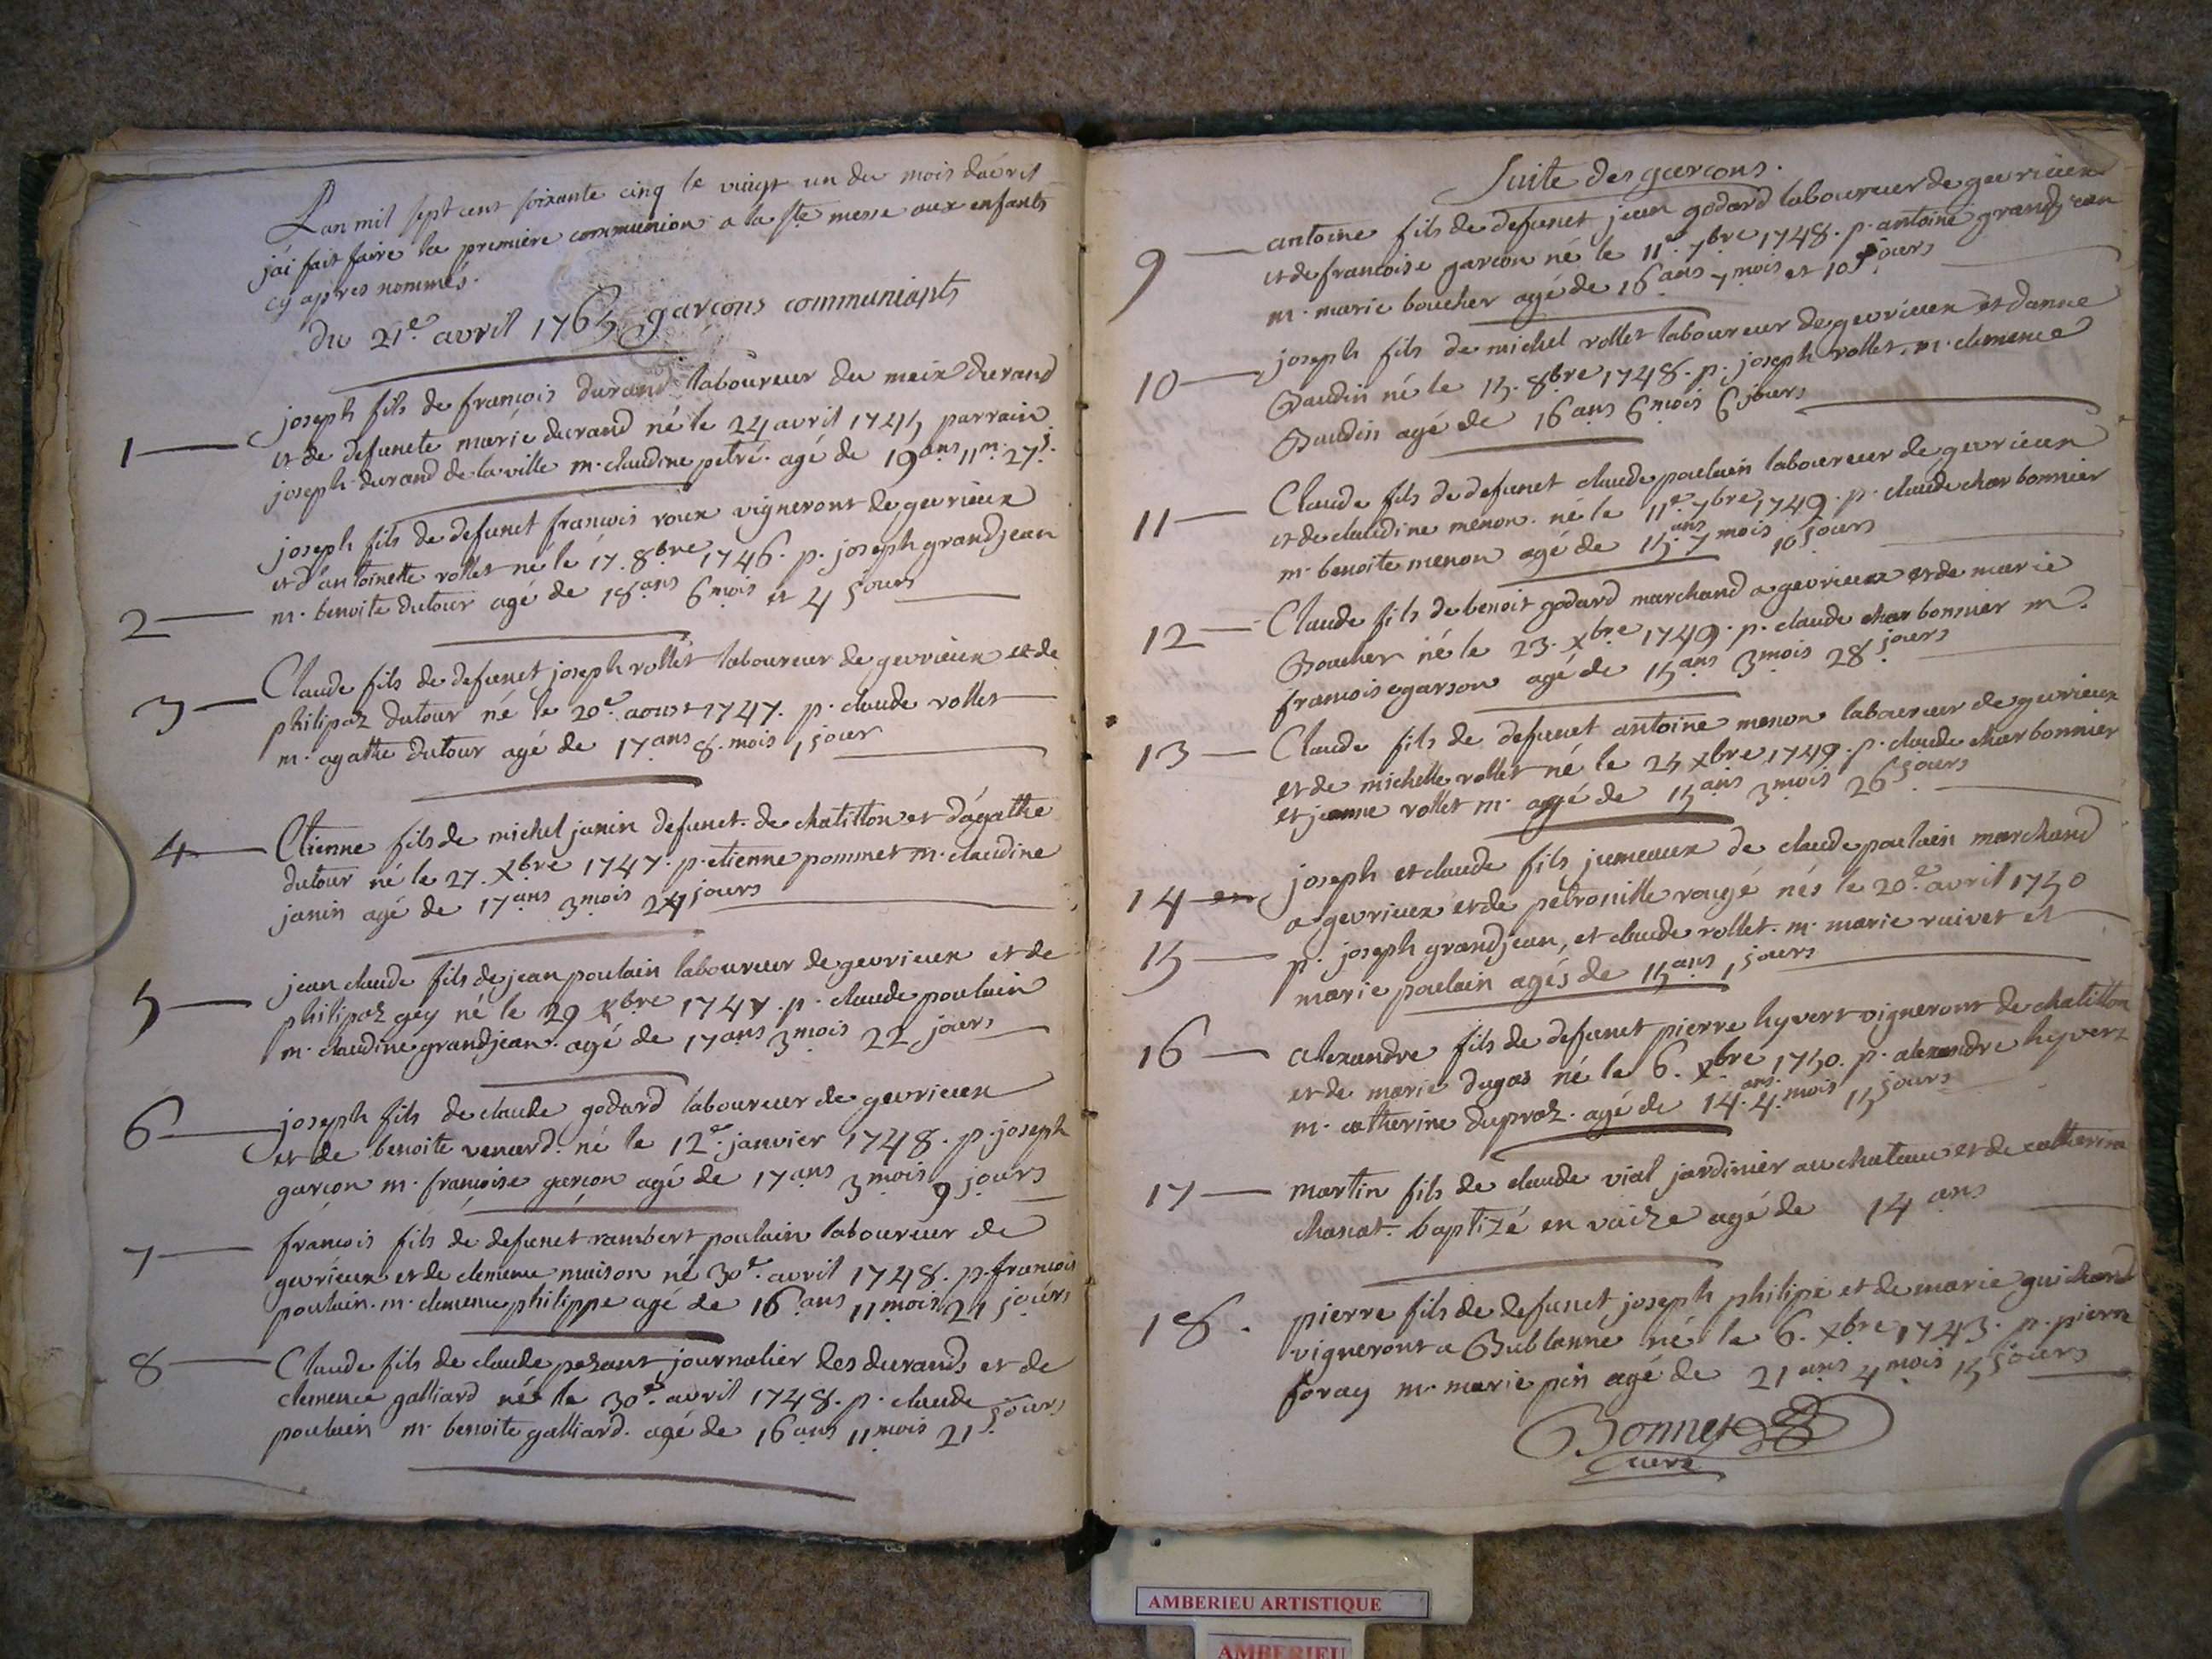 L'an mil sept cent soixante cinq le vingt un du mois d'avril
j'ai fait faire la premiere communion a la ste messe aux enfants
cy apres nommés.
du 21e. avril 1765 garçons communiants
1 — joseph fils de françois durand laboureur du meix durand
et de defuncte marie durand né le 24 avril 1745 parrain
joseph durand de la ville m. claudine petré. agé de 19 ans 11 m. 27 j.
joseph fils de defunct françois roux vigneront de gevrieux
et d'antoinette rollet né le 17. 8bre 1746. p. joseph grandjean
2 — m. benoite dutour agé de 18 ans 6 mois et 4 jours
Claude fils de defunct joseph rollet laboureur de gevrieux et de
3 — philipaz dutour né le 20e. aoust 1747. p. claude rollet
m. agathe dutour agé de 17 ans 8. mois 1 jour
4 — Etienne fils de michel janin defunct. de chatillon et d'agathe
dutour né le 27. Xbre 1747. p. etienne pommet m. claudine
janin agé de 17 ans 3 mois 24 jours
jean claude fils de jean poulain laboureur de gevrieux et de
5 — philipaz gey né le 29 xbre 1747. p. claude poulain
m. claudine grandjean. agé de 17 ans 3 mois 22 jours
6 — joseph fils de claude godard laboureur de gevrieux
et de benoite venard. né le 12e. janvier 1748. p. joseph
garçon m. françoise garçon agé de 17 ans 3 mois 9 jours
7 — françois fils de defunct rambert poulain laboureur de
gevrieux et de clemence maison né 30e. avril 1748. p. francois
poulain. m. clemence philippe agé de 16 ans 11 mois 21 jours
8 — Claude fils de claude pezant journalier des durands et de
clemence galliard né le 30e. avril 1748. p. claude
poulain m. benoite galliard. agé de 16 ans 11 mois 21 jours
Suite des garçons.
9 — antoine fils de defunct jean godard laboureur de gevrieux
et de françoise garçon né le 11e. 7bre 1748. p. antoine grandjean
m. marie boucher agé de 16 ans 7 mois et 10 jours
joseph fils de michel rollet laboureur de gevrieux et d'anne
10 — Baudin né le 15. 8bre 1748. p. joseph rollet. m. clemence
Baudin agé de 16 ans 6 mois 6 jours
Claude fils de defunct claude poulain laboureur de gevrieux
11 — et de claudine menon. né le 11e. 7bre 1749. p. claude charbonnier
m. benoite menon agé de 15. ans 7 mois 10 jours
12 — Claude fils de benoit godard marchand a gevrieux et de marie
Boucher né le 23. Xbre 1749. p. claude charbonnier m.
francoise garson agé de 15 ans 3 mois 28 jours
13 — Claude fils de defunct antoine menon laboureur de gevrieux
et de michelle rollet né le 25 xbre 1749. p. claude charbonnier
et jeanne rollet m. agé de 15 ans 3 mois 26 jours
joseph et claude fils jumeaux de claude poulain marchand
14 et a gevrieux et de petronille rougé nés le 20e. avril 1750
15 — p. joseph grandjean, et claude rollet. m. marie ruivet et
marie poulain agés de 15 ans 1 jours
16 — alexandre fils de defunct pierre hyvert vigneront de chatillon
et de marie dugas né le 6. Xbre 1750. p. alexandre hyvert
m. catherine dupraz. agé de 14. ans 4. mois 15 jours
17 — martin fils de claude vial jardinier au chateau et de catherine
chanat. baptizé en vaize agé de 14 ans
18. pierre fils de defunct joseph philipe et de marie guichard
vigneront a Bublanne né le 6. xbre 1743. p. pierre
foray m. marie pin agé de 21 ans 4 mois 15 jours
Bonnet
curé
AMBERIEU ARTISTIQUE
AMBERIEU